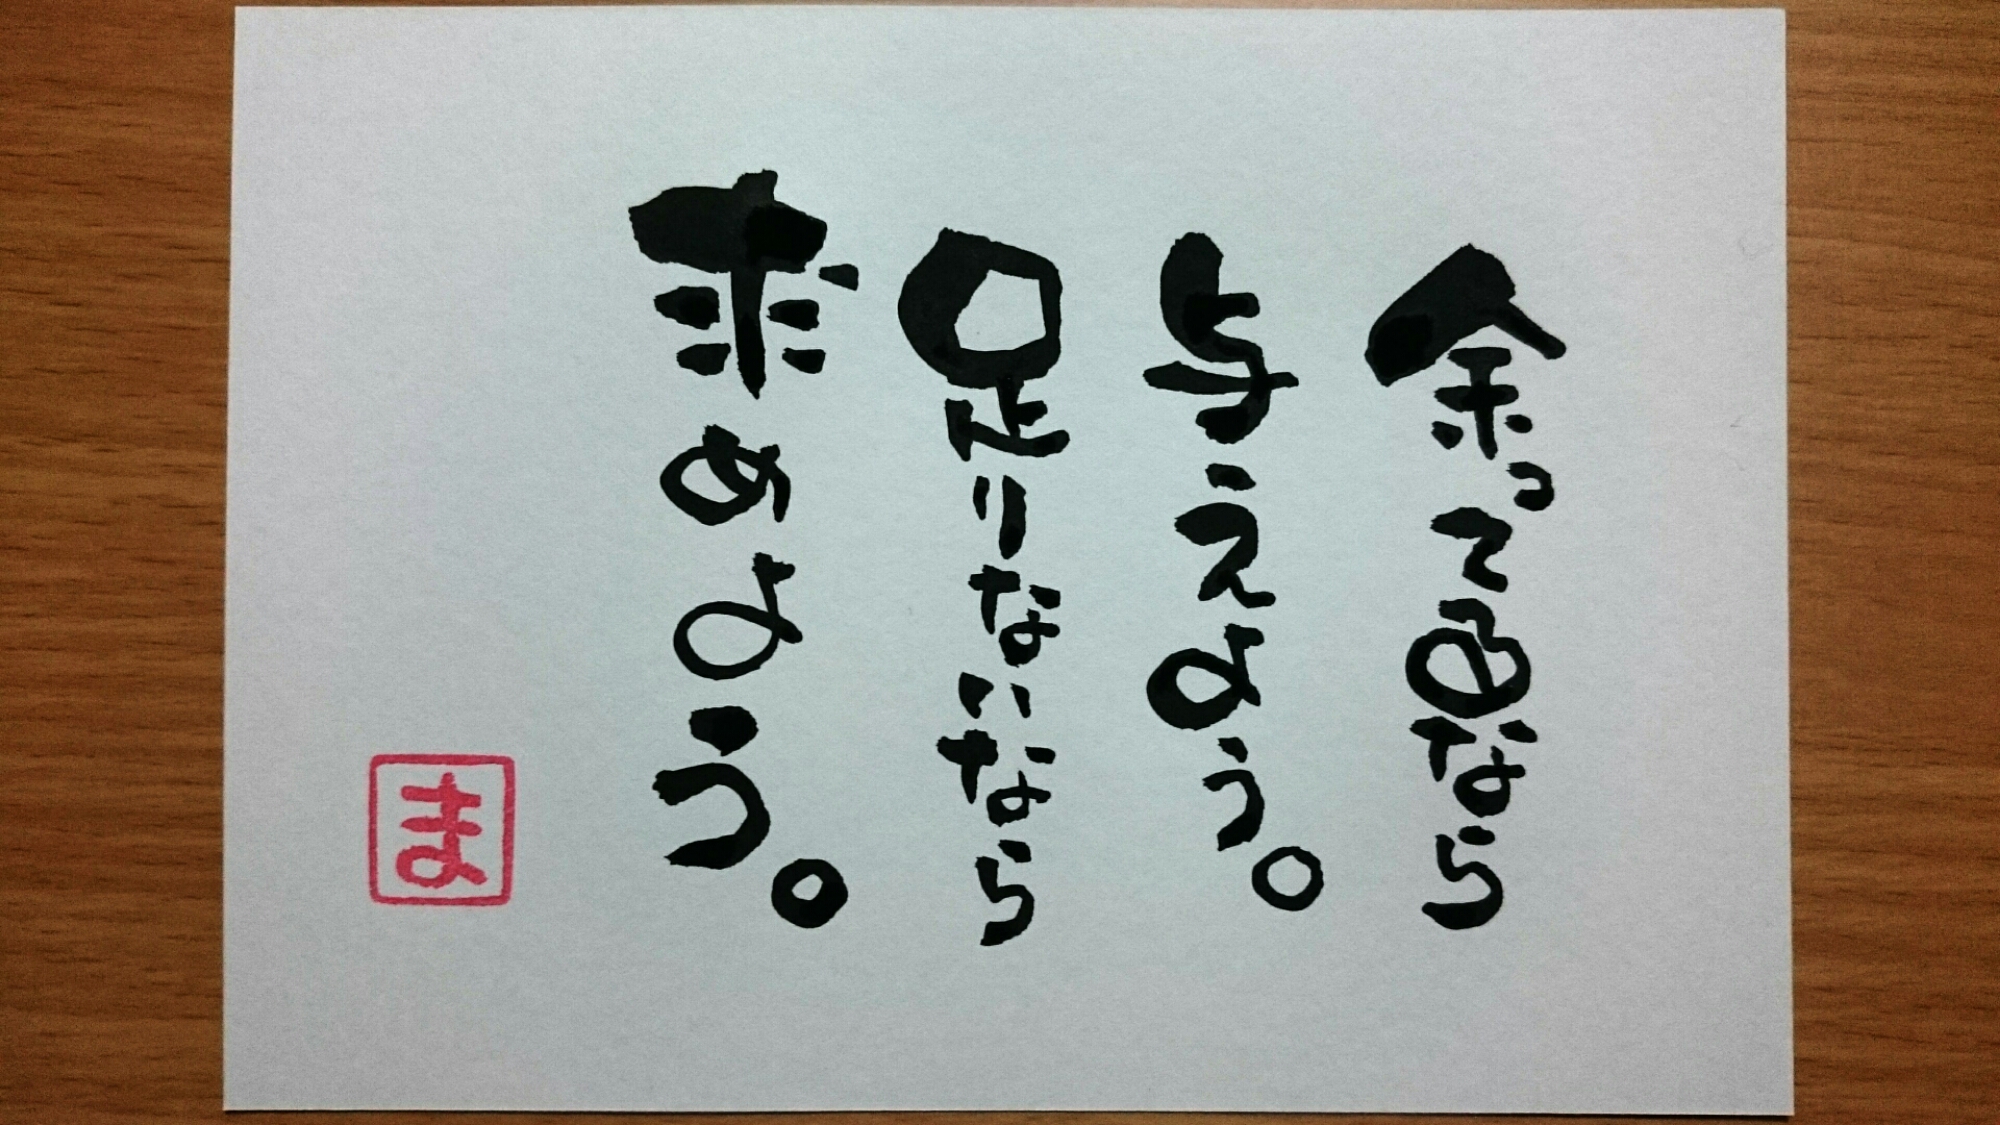 余ってるなら
与えよう。
足りないなら
求めよう。
ま